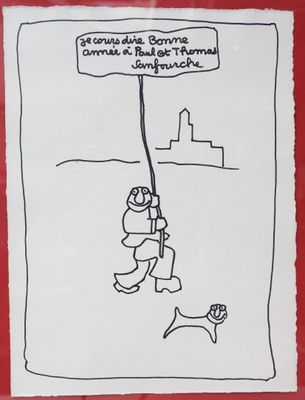 je cours dire Bonne
année à Paul et Thomas
Sanfourche